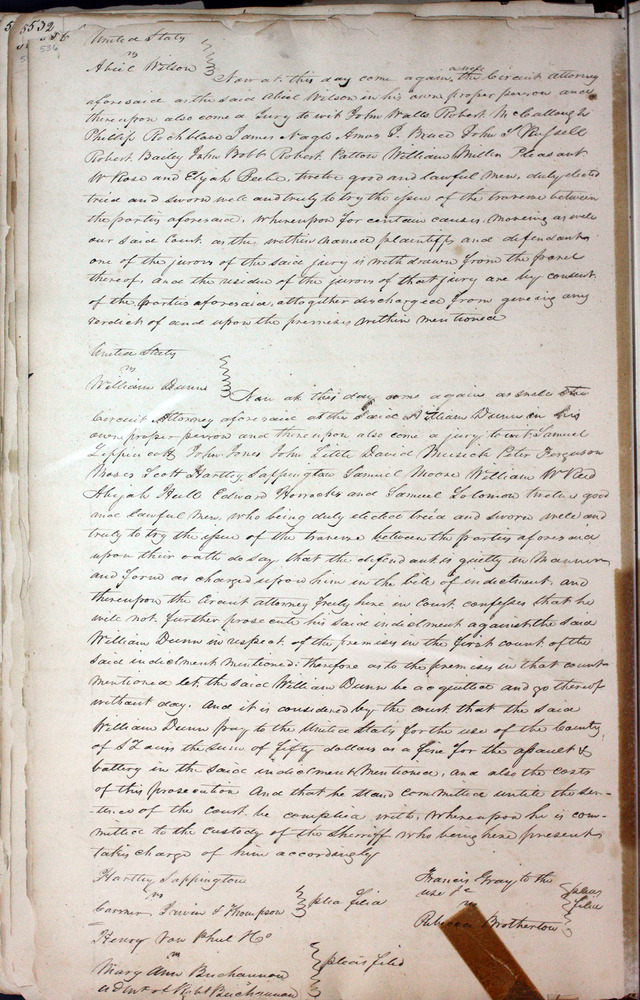 5532
536
United States
vs
Abiel Wilson
Now at this day come again as well the Circuit Attorney
aforesaid as the said Abiel Wilson in his own proper person and
thereupon also come a Jury to wit John Watts Robert McCallough
Phillip Rochblave James Nagle Amos J. Bruce John T Russell
Robert Bailey John Bobb Robert Patton William Millin Pleasant
W Rose and Elijah Peeke, twelve good and lawful men, duly elected
tried and sworn well and truly to try the issue of the traverse between
the parties aforesaid, whereupon for certain causes moving as well
our said Court as the within named plaintiffs and defendant
one of the jurors of the said jury is withdrawn from the panel
thereof, and the residue of the jurors of that jury are by consent
of the parties aforesaid, altogether discharged from giveing any
verdict of and upon the premises within mentioned
United States
vs
William Dunn
Now at this day come again as well the
Circuit Attorney aforesaid as the said William Dunn in his
own proper person and thereupon also come a jury to wit Samuel
Lippincott John Jones John Little David Musick Peter Ferguson
Moses Scott Hartley Sappington Samuel Moore William W Reid
Abijah Hull Edward Horrocks and Samuel Solomon twelve good
and lawful men, who being duly elected tried and sworn well and
truly to try the issue of the traverse between the parties aforesaid
upon their oath do say that the defendant is guilty in Manner
and form as charged upon him in the bill of indictment, and
thereupon the Circuit attorney freely here in Court confesses that he
will not further prosecute his said indictment against the said
William Dunn in respect of the premises in the first count of the
said indictment mentioned: therefore as to the premises in that count
mentioned let the said William Dunn be acquitted and go thereof
without day. And it is considered by the court that the said
William Dunn pay to the United States for the use of the County
of St Louis the sum of fifty dollars as a fine for the assault &
battery in the said indictment mentioned, and also the costs
of this prosecution And that he stand committed untill the sen-
tence of the court be complied with, whereupon he is com-
mitted to the custody of the Sherriff who being here present
takes charge of him accordingly
Hartley Sappington
vs
Irwin & Thompson
plea filed
Francis Gray to the
use &c
vs
Rebecca Brotherton
pleas
filed
Henry Von Phul &Co
vs
Mary Ann Buchannon
admx of Robt Buchannon
pleas filed